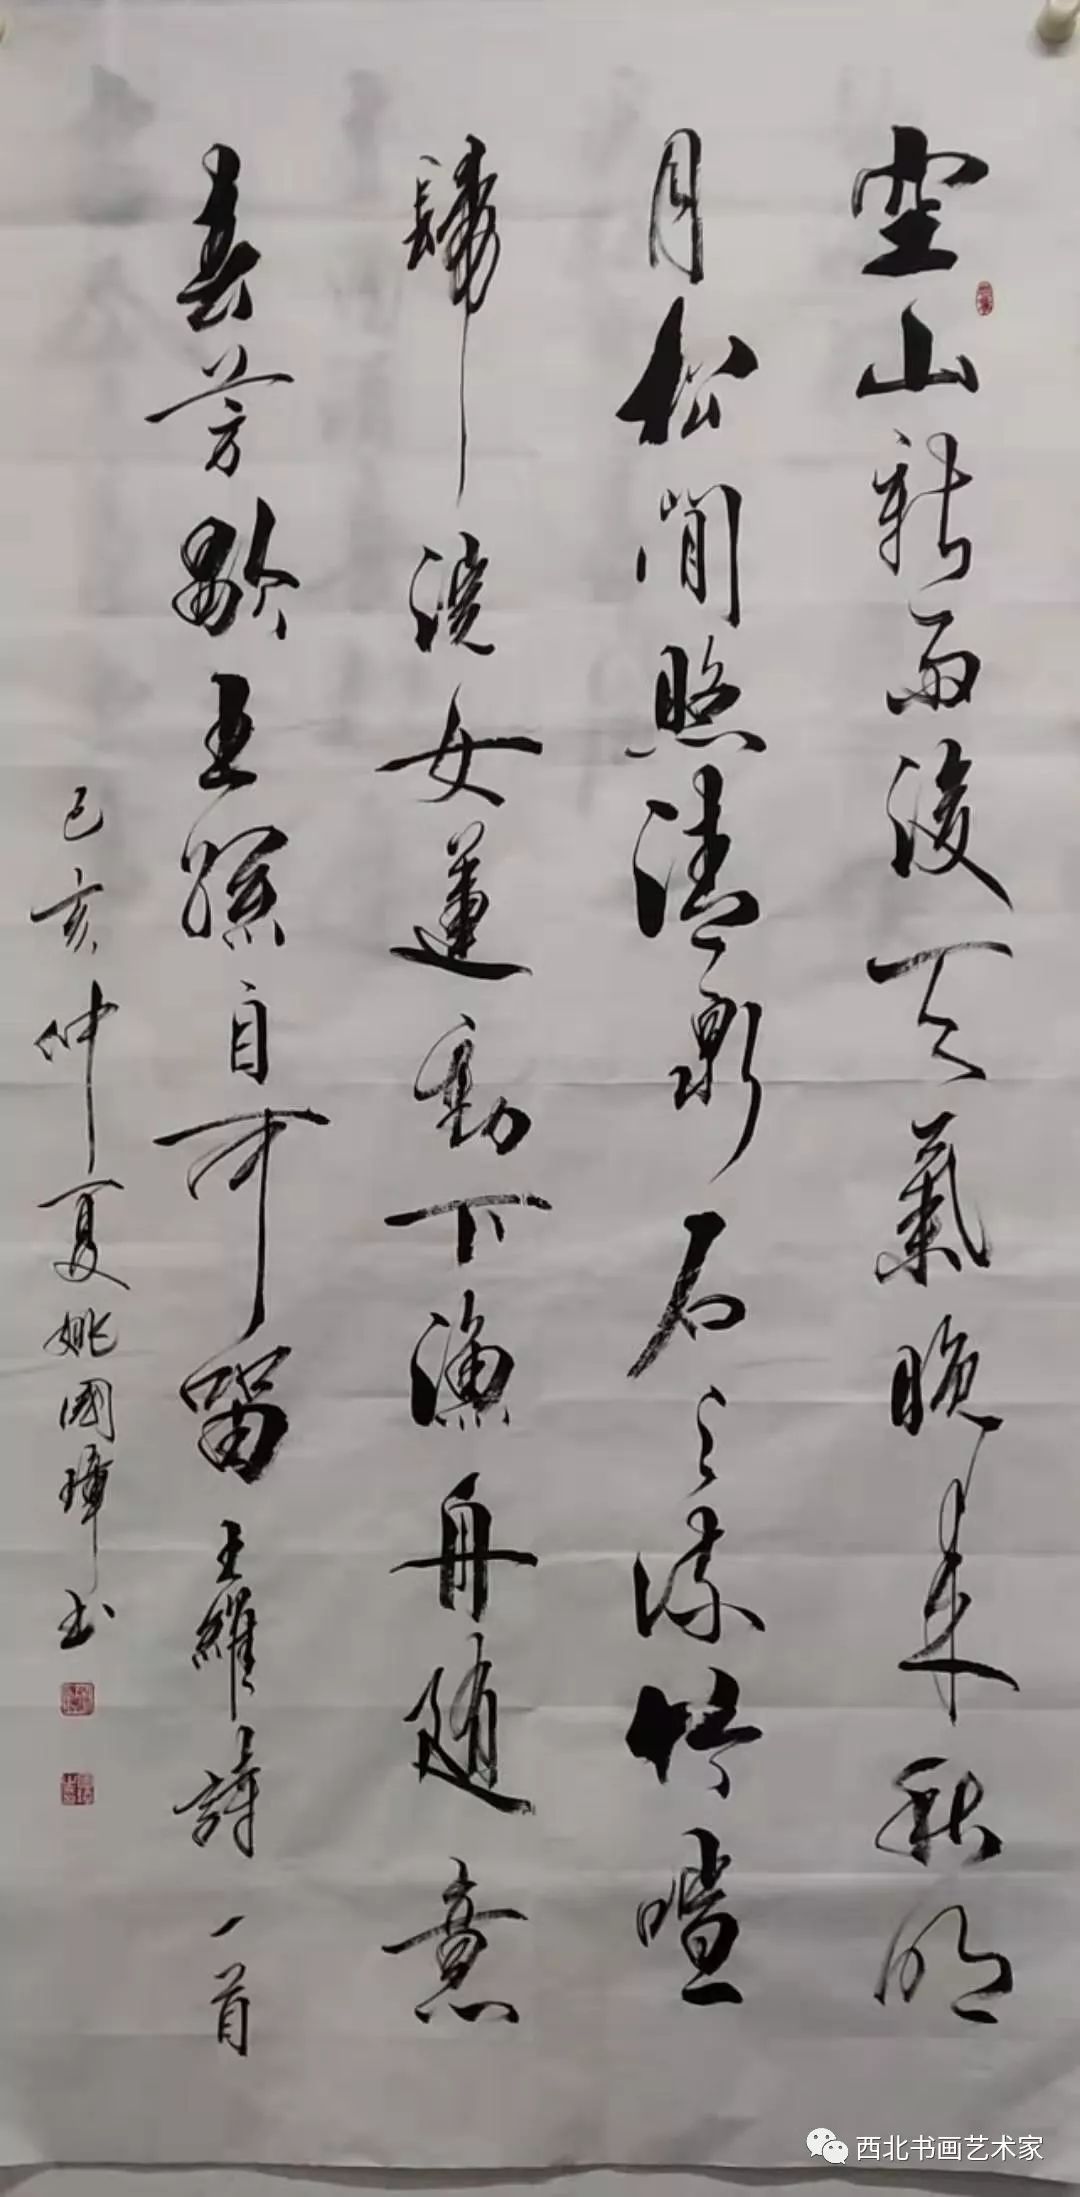 空山新雨後天氣晚来秋明
月松間照清泉石上流竹喧
歸浣女蓮動下漁舟随意
春芳歇王孫自可留王維詩一首
己亥仲夏姚國璋书
西北书画艺术家